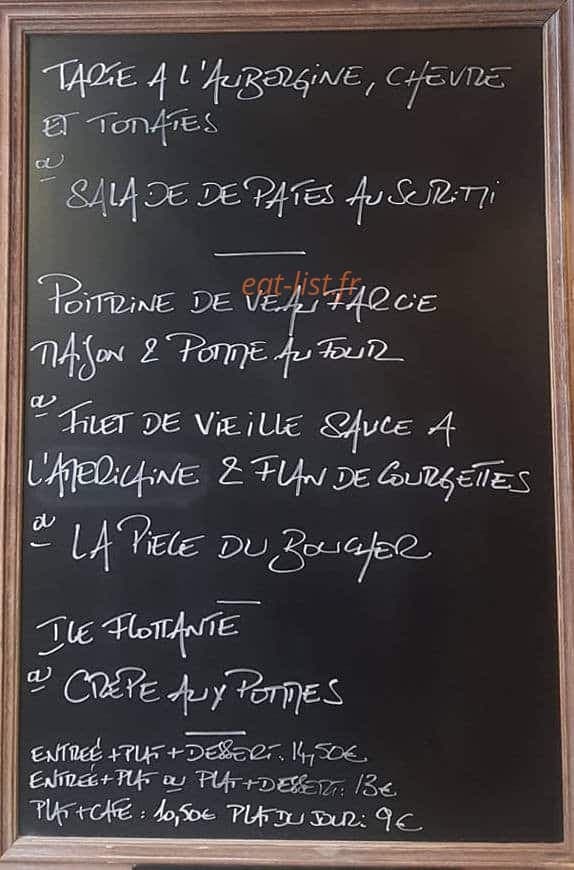 TARTE A L'AUBERGINE, CHEVRE
ET TOMATES
OU
SALADE DE PATES AU SURIMI
eat-list.fr
POITRINE DE VEAU FARCIE
MAISON & POMME AU FOUR
OU
FILET DE VIEILLE SAUCE A
L'AMERICAINE & FLAN DE COURGETTES
OU
LA PIECE DU BOUCHER
ILE FLOTTANTE
OU
CREPE AUX POMMES
ENTREÉ + PLAT + DESSERT: 14,50€
ENTRÉE + PLAT OU PLAT + DESSERT: 13€
PLAT + CAFE: 10,50€ PLAT DU JOUR: 9€